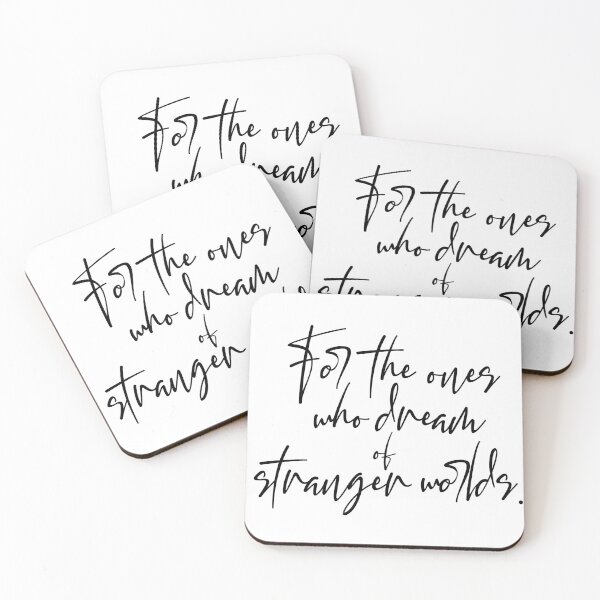 For the ones
who dream
For the ones
who dream
of
stranger worlds.
For the ones
who dream
of
stranger
For the ones
who dream
of
stranger worlds.